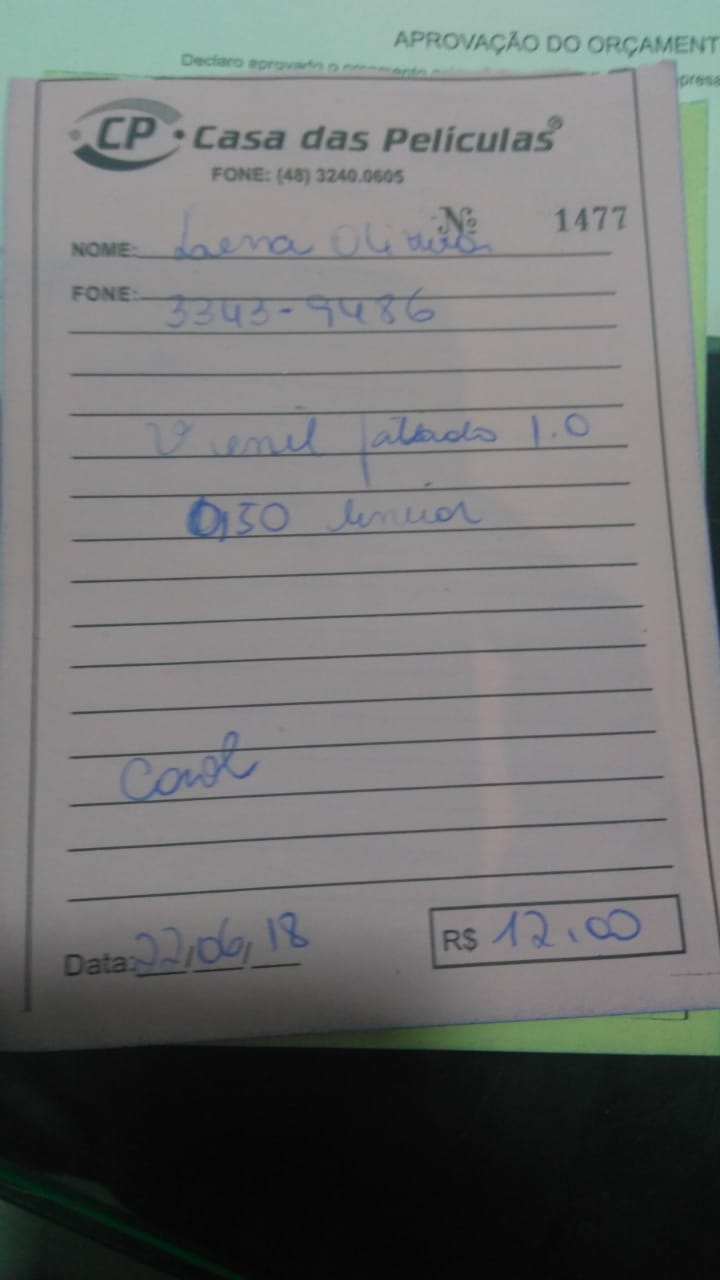 APROVAÇÃO DO ORÇAMENT
Declaro aprovado o orçamento
presa
CP Casa das Películas®
FONE: (48) 3240.0605
Nº 1477
NOME: Oliveira
FONE: 3343-9486
jateado 1.0
0,50 linear
Carol
Data: 22/06/18
R$ 12.00